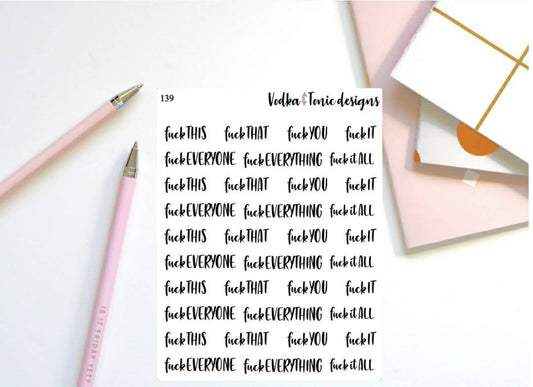 139 Vodka & Tonic designs
fuck THIS fuck THAT fuck YOU fuck IT
fuck EVERYONE fuck EVERYTHING fuck it ALL
fuck THIS fuck THAT fuck YOU fuck IT
fuck EVERYONE fuck EVERYTHING fuck it ALL
fuck THIS fuck THAT fuck YOU fuck IT
fuck EVERYONE fuck EVERYTHING fuck it ALL
fuck THIS fuck THAT fuck YOU fuck IT
fuck EVERYONE fuck EVERYTHING fuck it ALL
fuck THIS fuck THAT fuck YOU fuck IT
fuck EVERYONE fuck EVERYTHING fuck it ALL
IS IT FRIDAY YET?